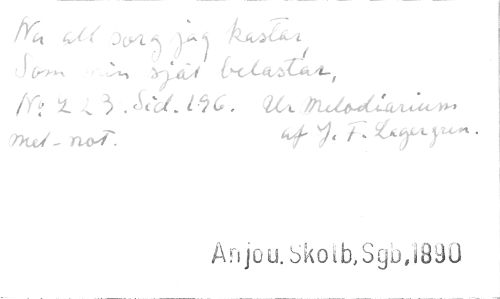 Nu all sorg jag kastar,
Som min själ belastar,
No 223. Sid. 196. Ur Melodiarium
met-not. af J. F. Lagergren.
Anjou, Skolb, Sgb, 1890